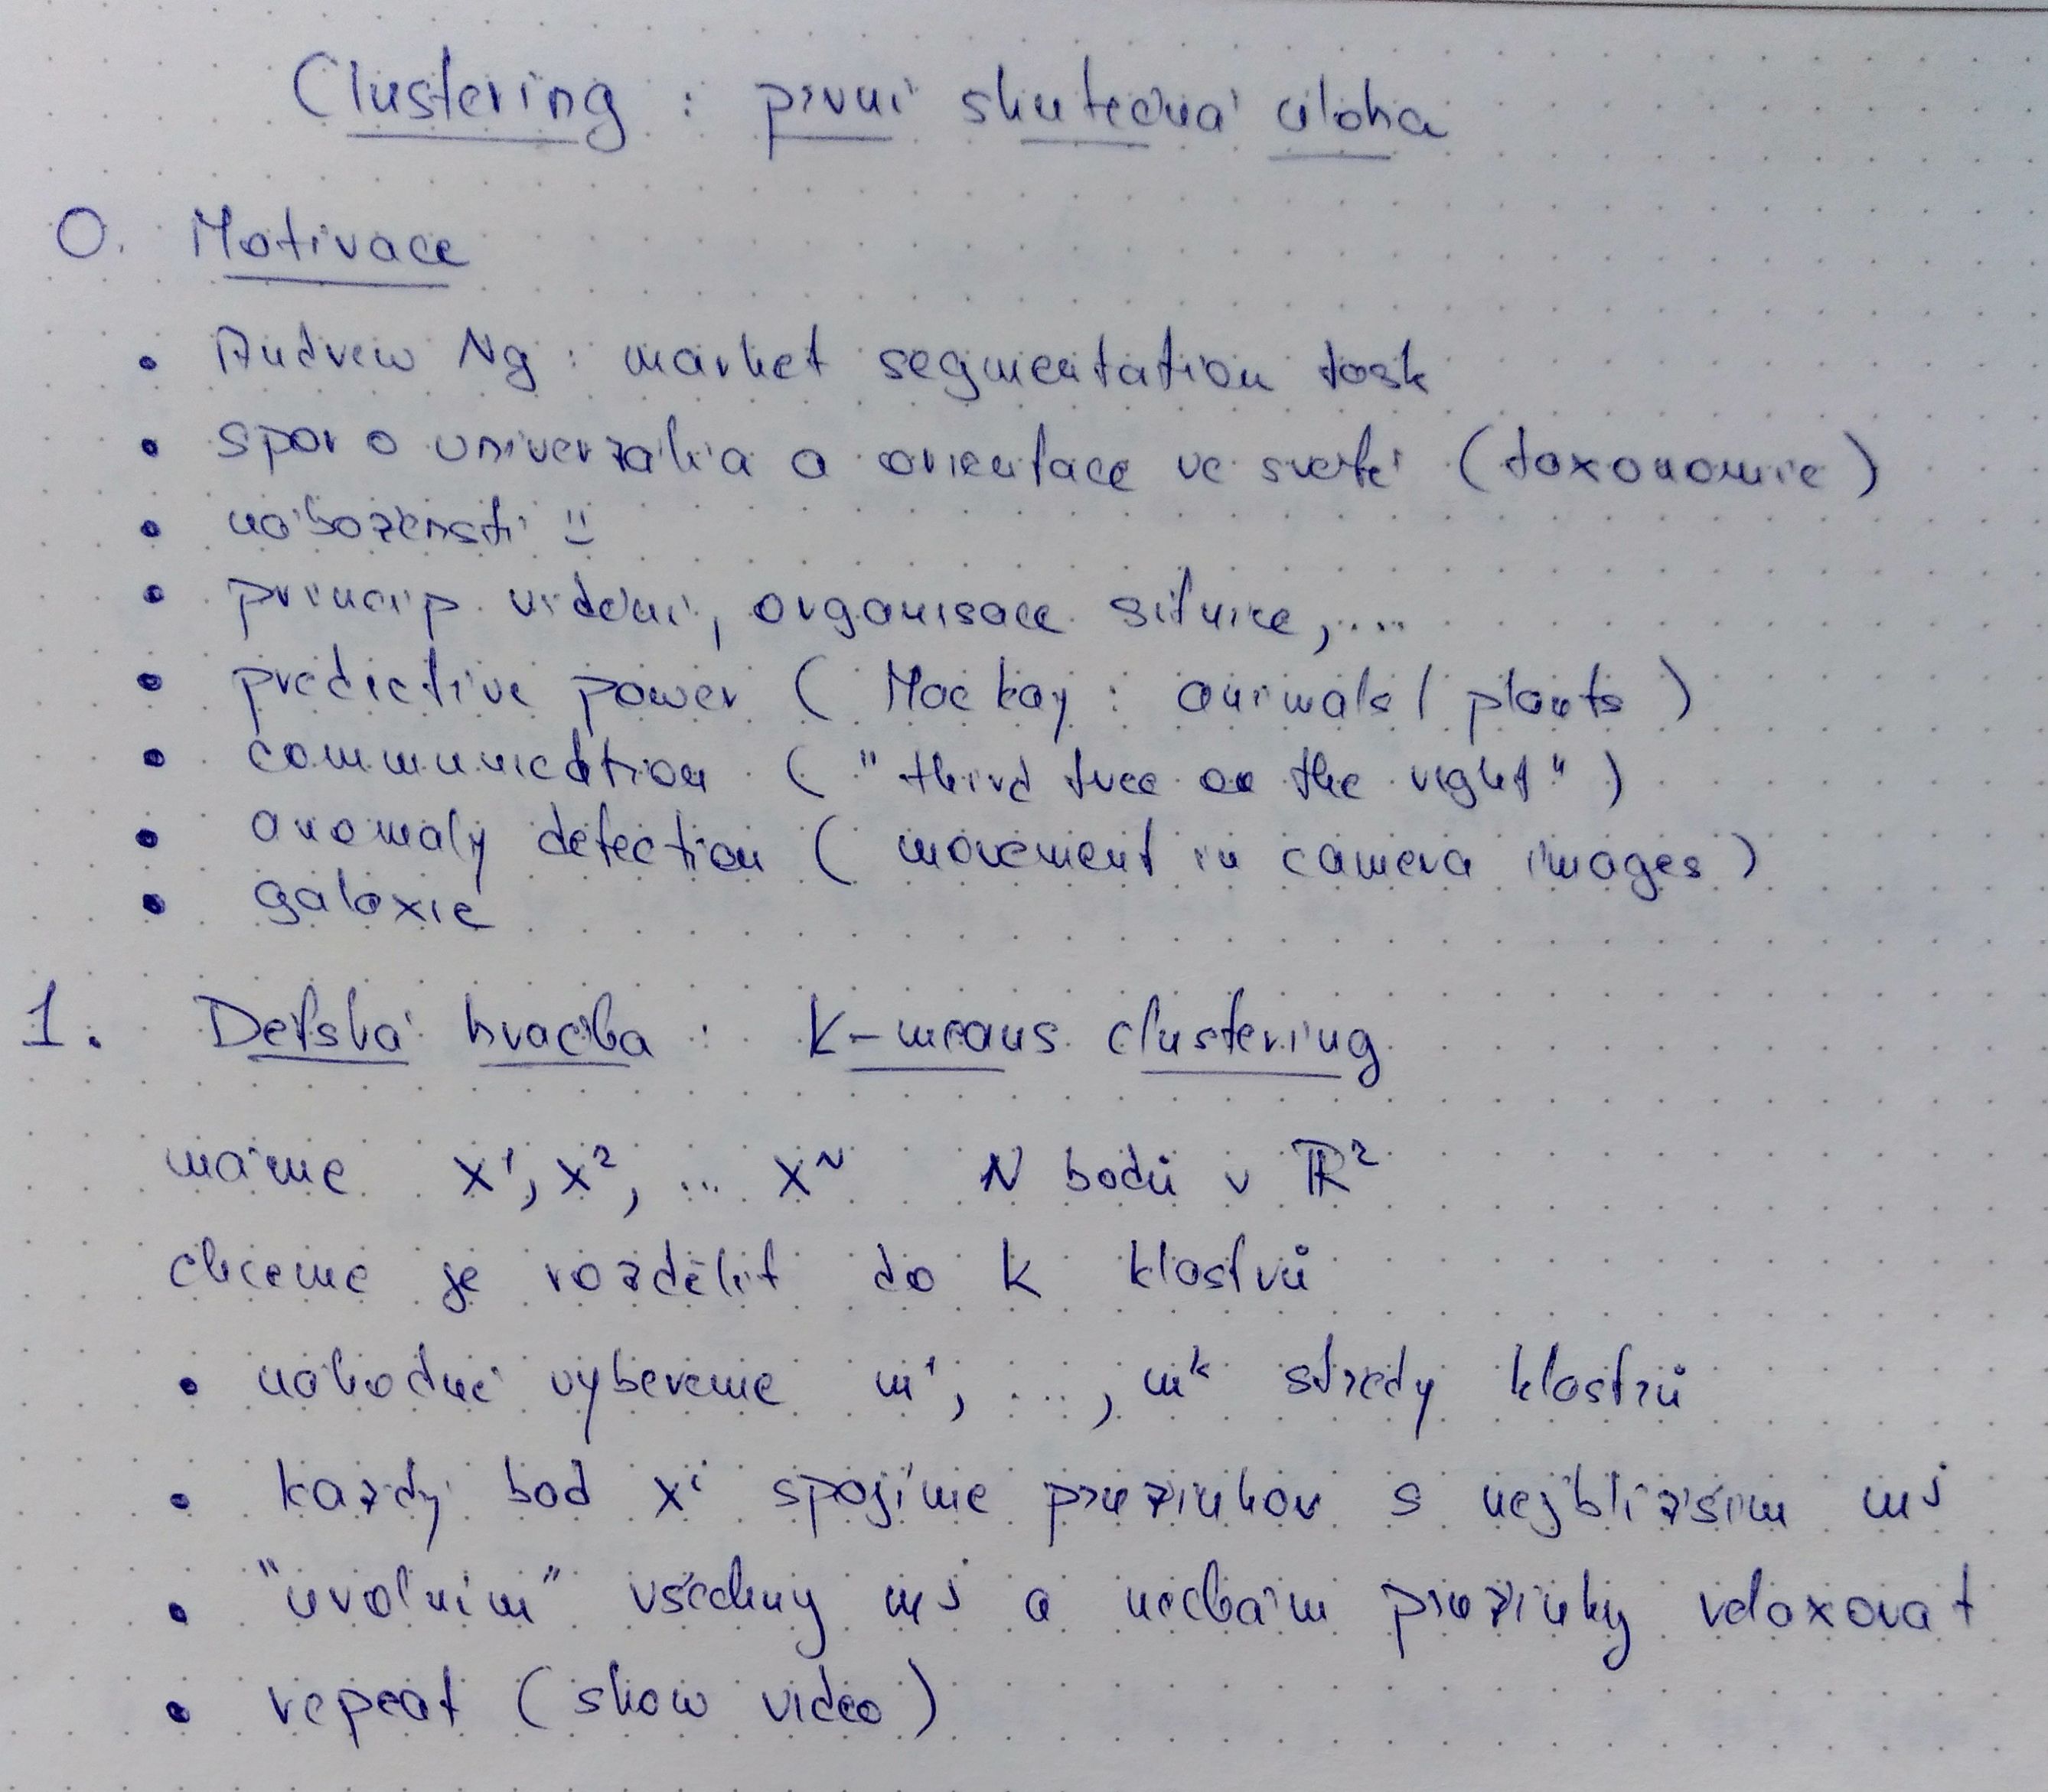 Clustering : první skutečná úloha
0. Motivace
• Andrew Ng : market segmentation task
• spor o univerzália a orientace ve světě (taxonomie)
• náboženství :)
• princip vidění, organisace sítnice, ....
• predictive power ( MacKay : animals / plants )
• communication ( "third tree on the right" )
• anomaly detection ( movement in camera images )
• galaxie
1. Dětská hračka : K-means clustering
máme x¹, x², ... xᴺ N bodů v ℝ²
chceme je rozdělit do K klastrů
• náhodně vybereme m¹, ..., mᵏ středy klastrů
• každý bod xⁱ spojíme pružinkou s nejbližším mʲ
• "uvolním" všechny mʲ a nechám pružinky relaxovat
• repeat (show video)